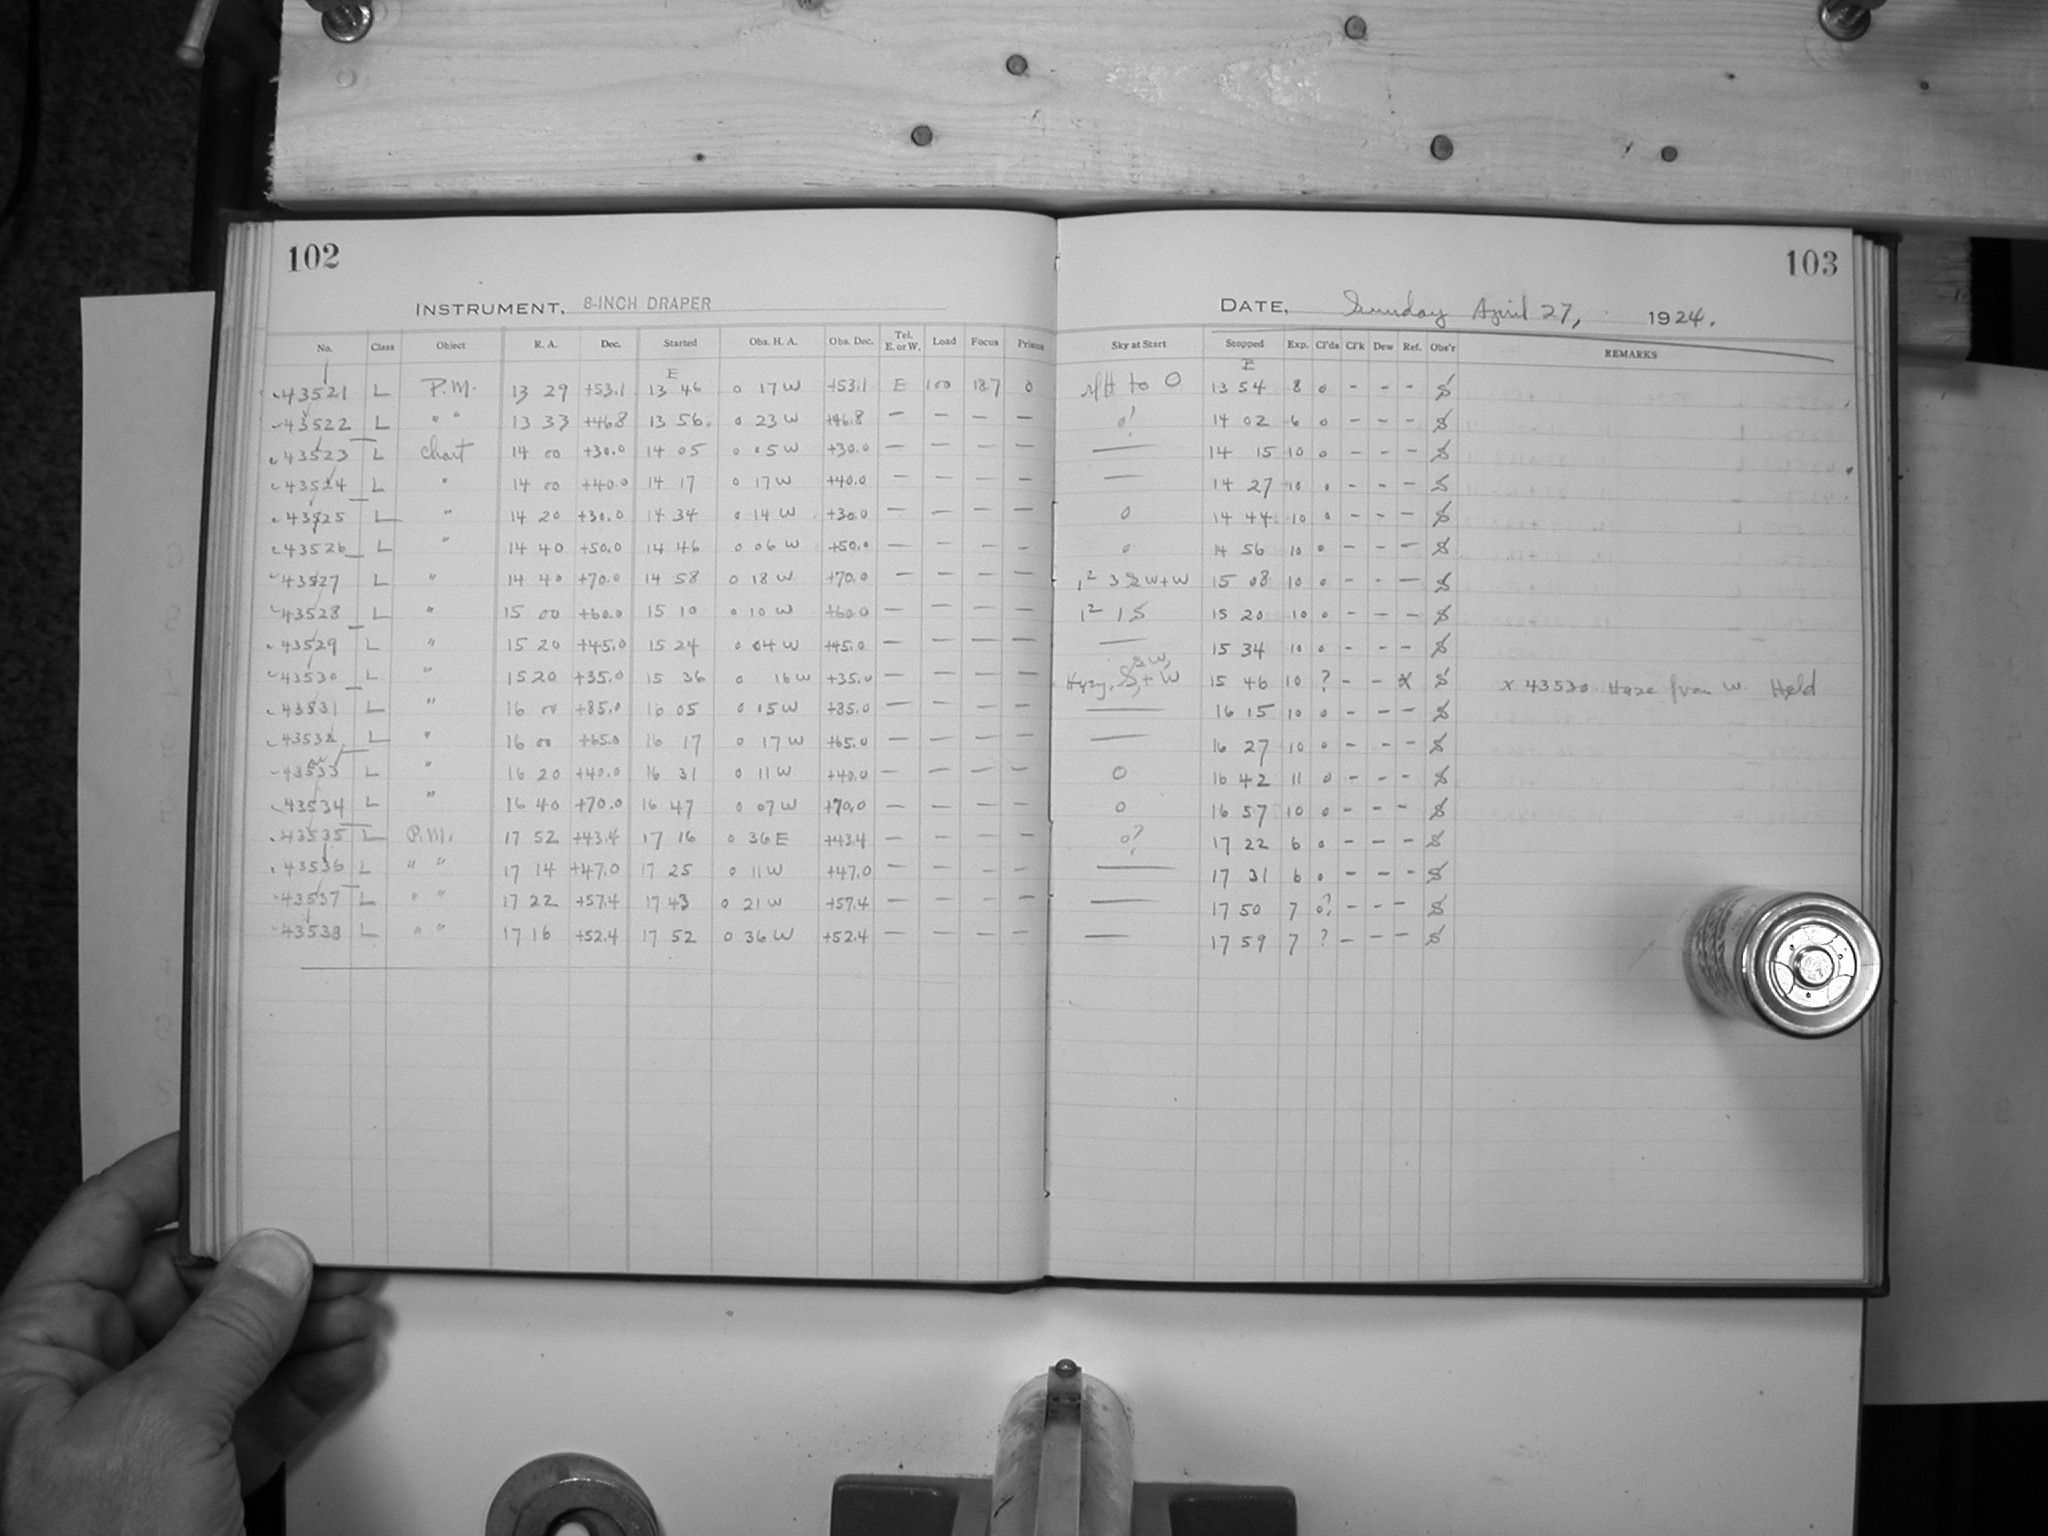 102
INSTRUMENT, 8-INCH DRAPER
No. Class Object R. A. Dec. Started Obs. H. A. Obs. Dec. Tel. E. or W. Load Focus Prisms
E
43521 L P.M. 13 29 +53.1 13 46 0 17 W +53.1 E 100 18.7 0
43522 L " " 13 33 +46.8 13 56. 0 23 W +46.8 — — — —
43523 L chart 14 00 +30.0 14 05 0 05 W +30.0 — — — —
43524 L " 14 00 +40.0 14 17 0 17 W +40.0 — — — —
43525 L " 14 20 +30.0 14 34 0 14 W +30.0 — — — —
43526 L " 14 40 +50.0 14 46 0 06 W +50.0 — — — —
43527 L " 14 40 +70.0 14 58 0 18 W +70.0 — — — —
43528 L " 15 00 +60.0 15 10 0 10 W +60.0 — — — —
43529 L " 15 20 +45.0 15 24 0 04 W +45.0 — — — —
43530 L " 15 20 +35.0 15 36 0 16 W +35.0 — — — —
43531 L " 16 00 +85.0 16 05 0 05 W +85.0 — — — —
43532 L " 16 00 +65.0 16 17 0 17 W +65.0 — — — —
43533 L " 16 20 +40.0 16 31 0 11 W +40.0 — — — —
43534 L " 16 40 +70.0 16 47 0 07 W +70.0 — — — —
43535 L P.M. 17 52 +43.4 17 16 0 36 E +43.4 — — — —
43536 L " " 17 14 +47.0 17 25 0 11 W +47.0 — — — —
43537 L " " 17 22 +57.4 17 43 0 21 W +57.4 — — — —
43538 L " " 17 16 +52.4 17 52 0 36 W +52.4 — — — —
103
DATE, Sunday April 27, 1924.
Sky at Start Stopped Exp. Cl'ds Cl'k Dew Ref. Obs'r REMARKS
E
to 0 13 54 8 0 - - - S
0? 14 02 6 0 - - - S
— 14 15 10 0 - - - S
— 14 27 10 0 - - - S
0 14 44 10 0 - - - S
0 14 56 10 0 - - - S
1² 3 SW+W 15 08 10 0 - - - S
1² 1 S 15 20 10 0 - - - S
— 15 34 10 0 - - - S
Hazy, S, SW, + W 15 46 10 ? - - x S x 43530. Haze from W. Held
— 16 15 10 0 - - - S
— 16 27 10 0 - - - S
0 16 42 11 0 - - - S
0 16 57 10 0 - - - S
0? 17 22 6 0 - - - S
— 17 31 6 0 - - - S
— 17 50 7 0? - - - S
— 17 59 7 ? - - - S